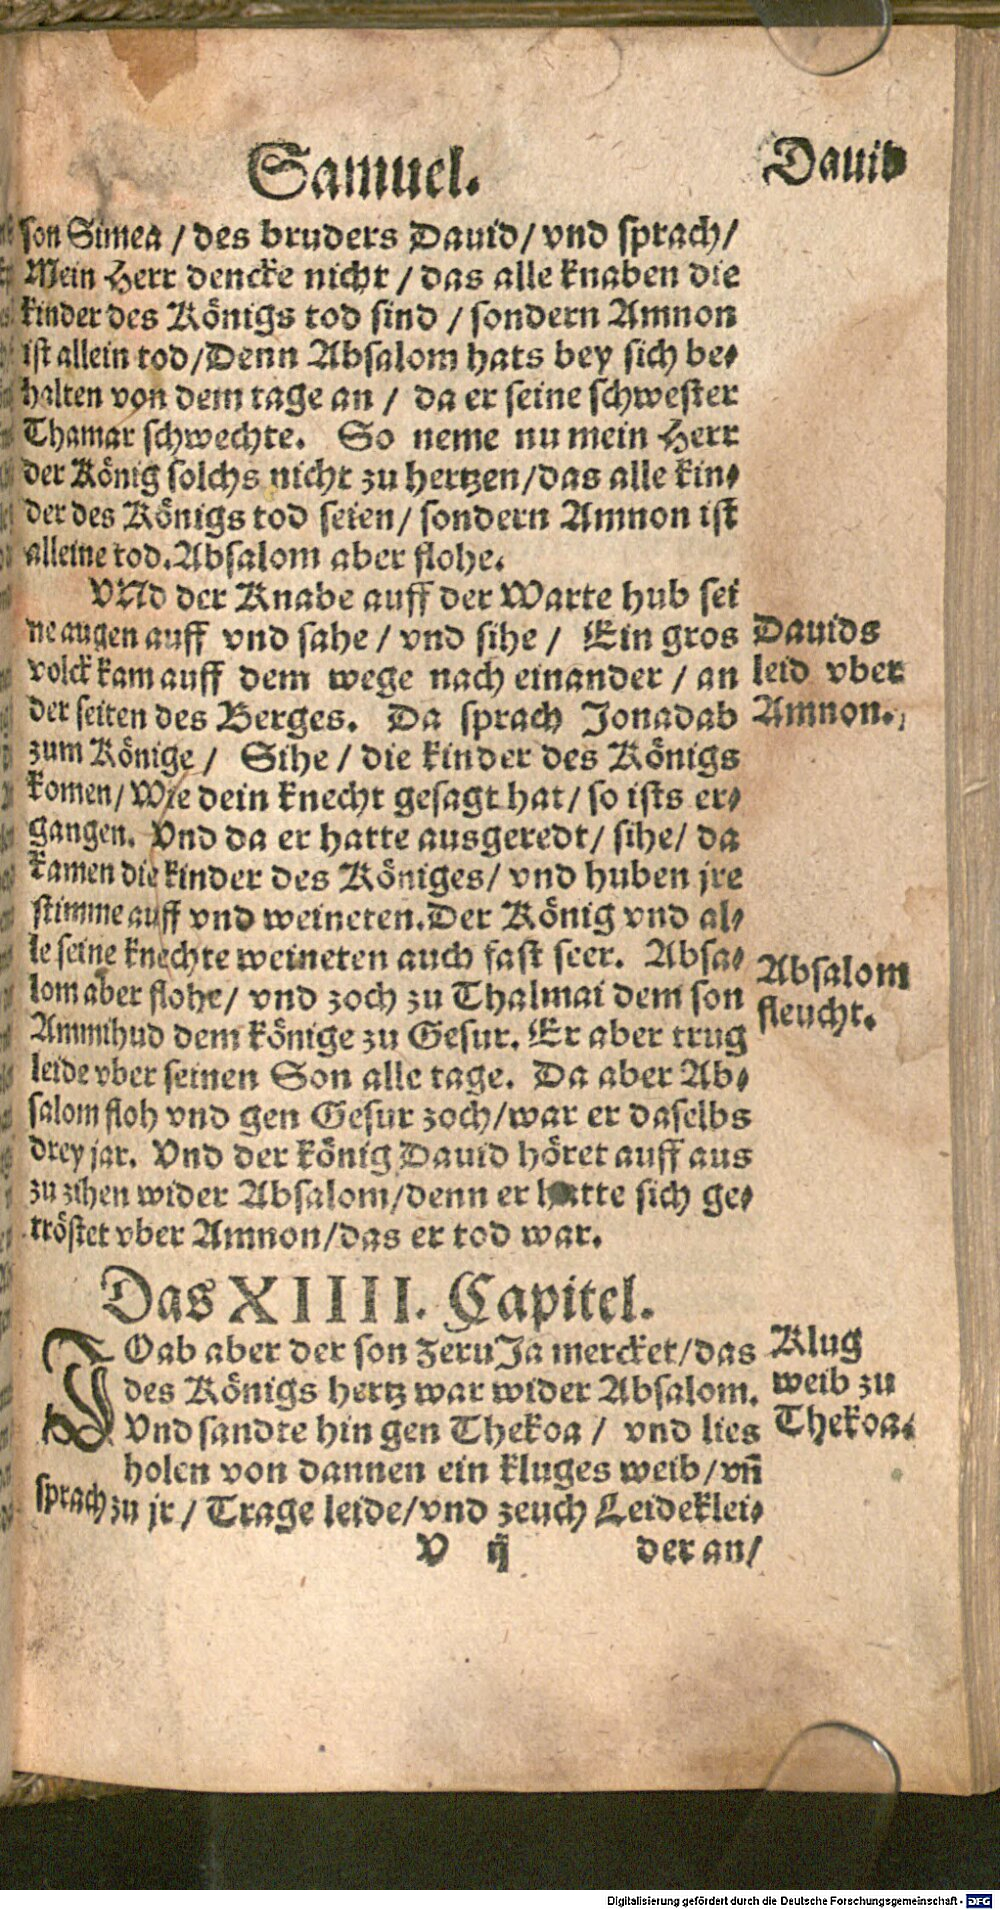 Samuel.
Dauid
son Simea / des bruders Dauid/ vnd sprach/
Mein Herr dencke nicht / das alle knaben die
kinder des Königs tod sind / sondern Amnon
ist allein tod/Denn Absalom hats bey sich be⸗
halten von dem tage an / da er seine schwester
Thamar schwechte. So neme nu mein Herr
der König solchs nicht zu hertzen/das alle kin⸗
der des Königs tod seien/ sondern Amnon ist
alleine tod. Absalom aber flohe.
VNd der Knabe auff der Warte hub sei
ne augen auff vnd sahe / vnd sihe / Ein gros
volck kam auff dem wege nach einander / an
der seiten des Berges. Da sprach Jonadab
zum Könige / Sihe / die kinder des Königs
komen/ Wie dein knecht gesagt hat/ so ists er⸗
gangen. Vnd da er hatte ausgeredt/ sihe/ da
kamen die kinder des Königes/ vnd huben jre
stimme auff vnd weineten. Der König vnd al⸗
le seine knechte weineten auch fast seer. Absa⸗
lom aber flohe/ vnd zoch zu Thalmai dem son
Ammihud dem könige zu Gesur. Er aber trug
leide vber seinen Son alle tage. Da aber Ab⸗
salom floh vnd gen Gesur zoch/war er daselbs
drey jar. Vnd der könig Dauid höret auff aus
zu zihen wider Absalom/denn er hatte sich ge⸗
tröstet vber Amnon/das er tod war.
Dauids
leid vber
Amnon.
Absalom
fleucht.
Das XIIII. Capitel.
JOab aber der son ZeruJa mercket/das
des Königs hertz war wider Absalom.
Vnd sandte hin gen Thekoa / vnd lies
holen von dannen ein kluges weib/ vñ
sprach zu jr / Trage leide/vnd zeuch Leideklei⸗
Klug
weib zu
Thekoa.
V ij
der an/
Digitalisierung gefördert durch die Deutsche Forschungsgemeinschaft - DFG